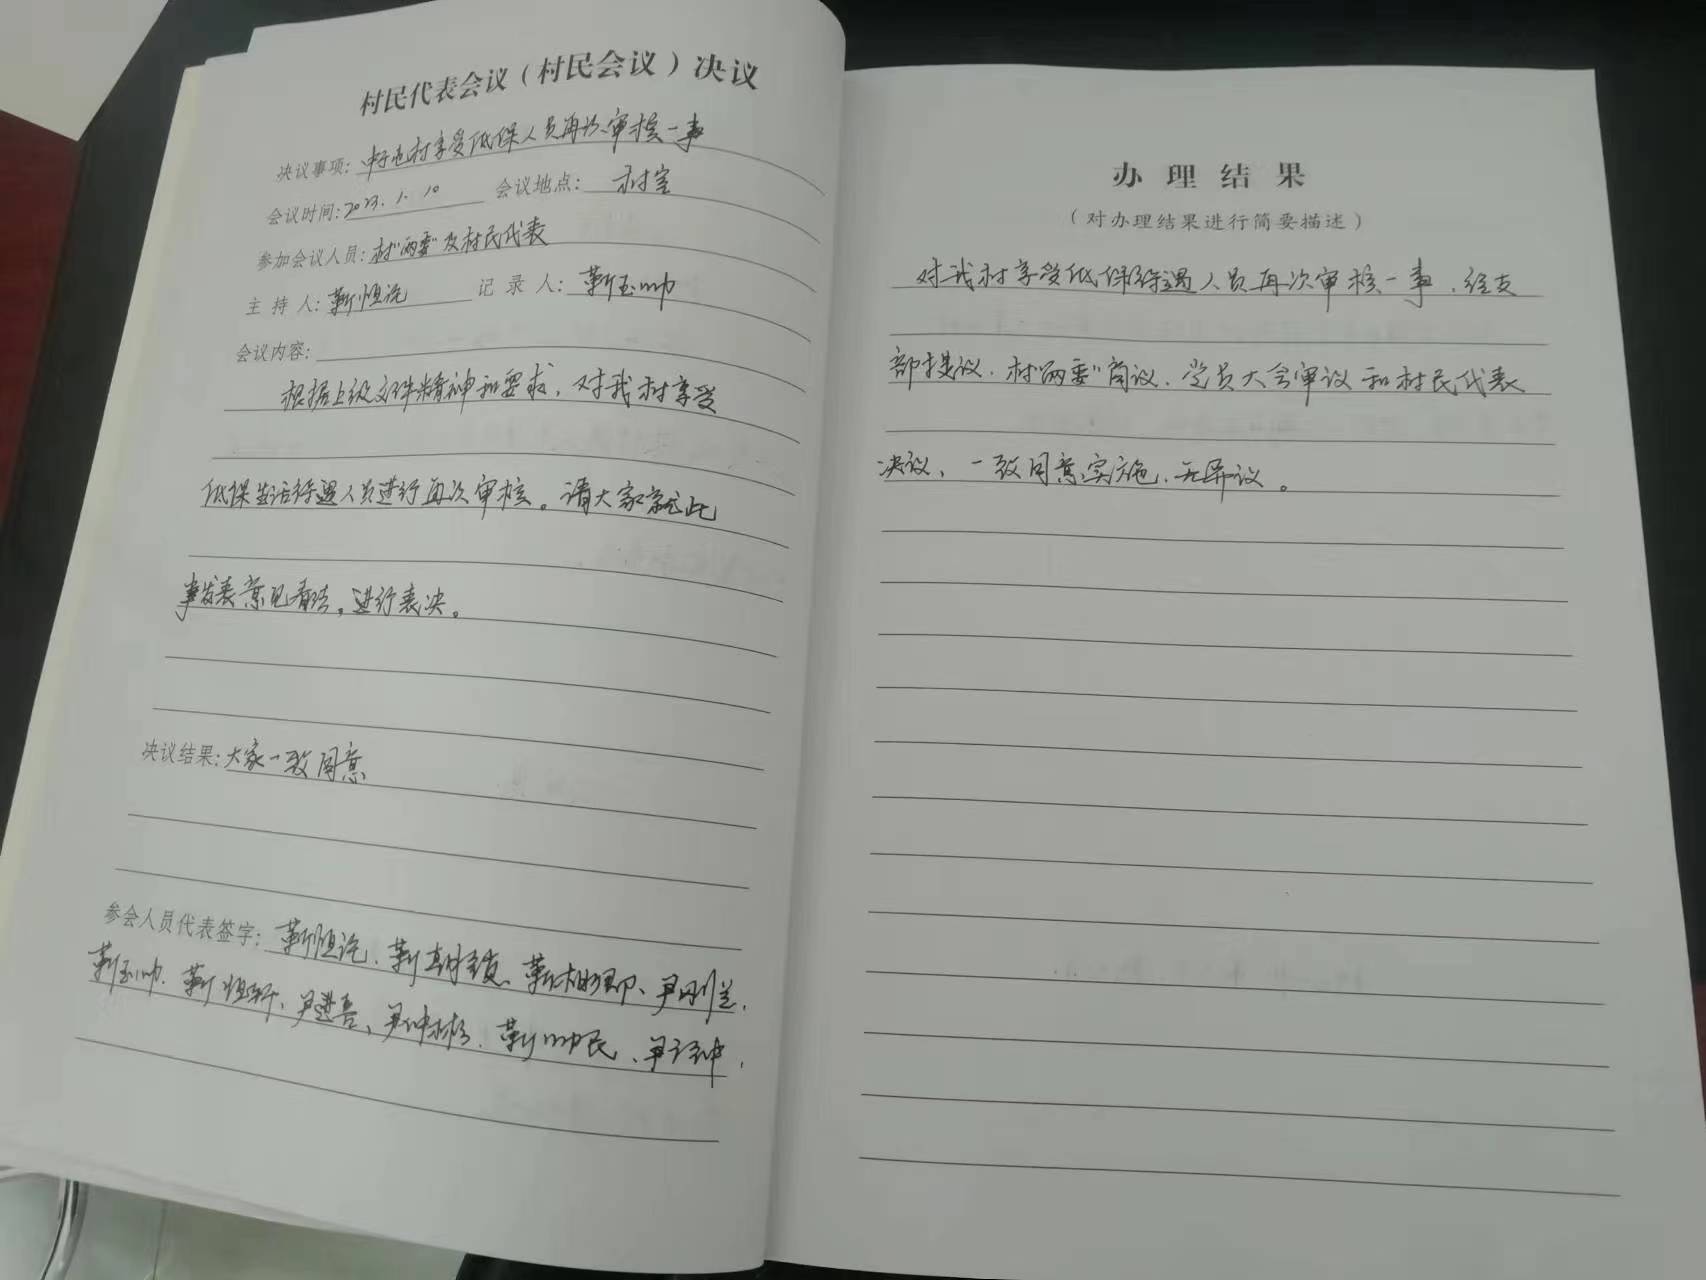 村民代表会议（村民会议）决议
决议事项：村享受低保人员再次审核一事
会议时间：2023.1.10 会议地点：村室
参加会议人员：村“两委”及村民代表
主持人：靳恒 记录人：靳玉帅
会议内容：
根据上级文件精神和要求，对我村享受
低保生活待遇人员进行再次审核。请大家就此
事发表意见看法，进行表决。
决议结果：大家一致同意
参会人员代表签字：靳恒、靳、靳、尹刚兰、
靳玉帅、靳恒轩、尹进喜、尹仲彬、靳帅民、尹
办理结果
（对办理结果进行简要描述）
对我村享受低保待遇人员再次审核一事，经支
部提议、村“两委”商议、党员大会审议和村民代表
决议、一致同意实施，无异议。